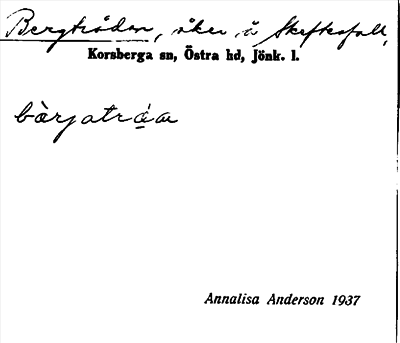 Bergtråden, åker å Skeftesfall,
Korsberga sn, Östra hd, Jönk. l.
bàrjatráa
Annalisa Anderson 1937